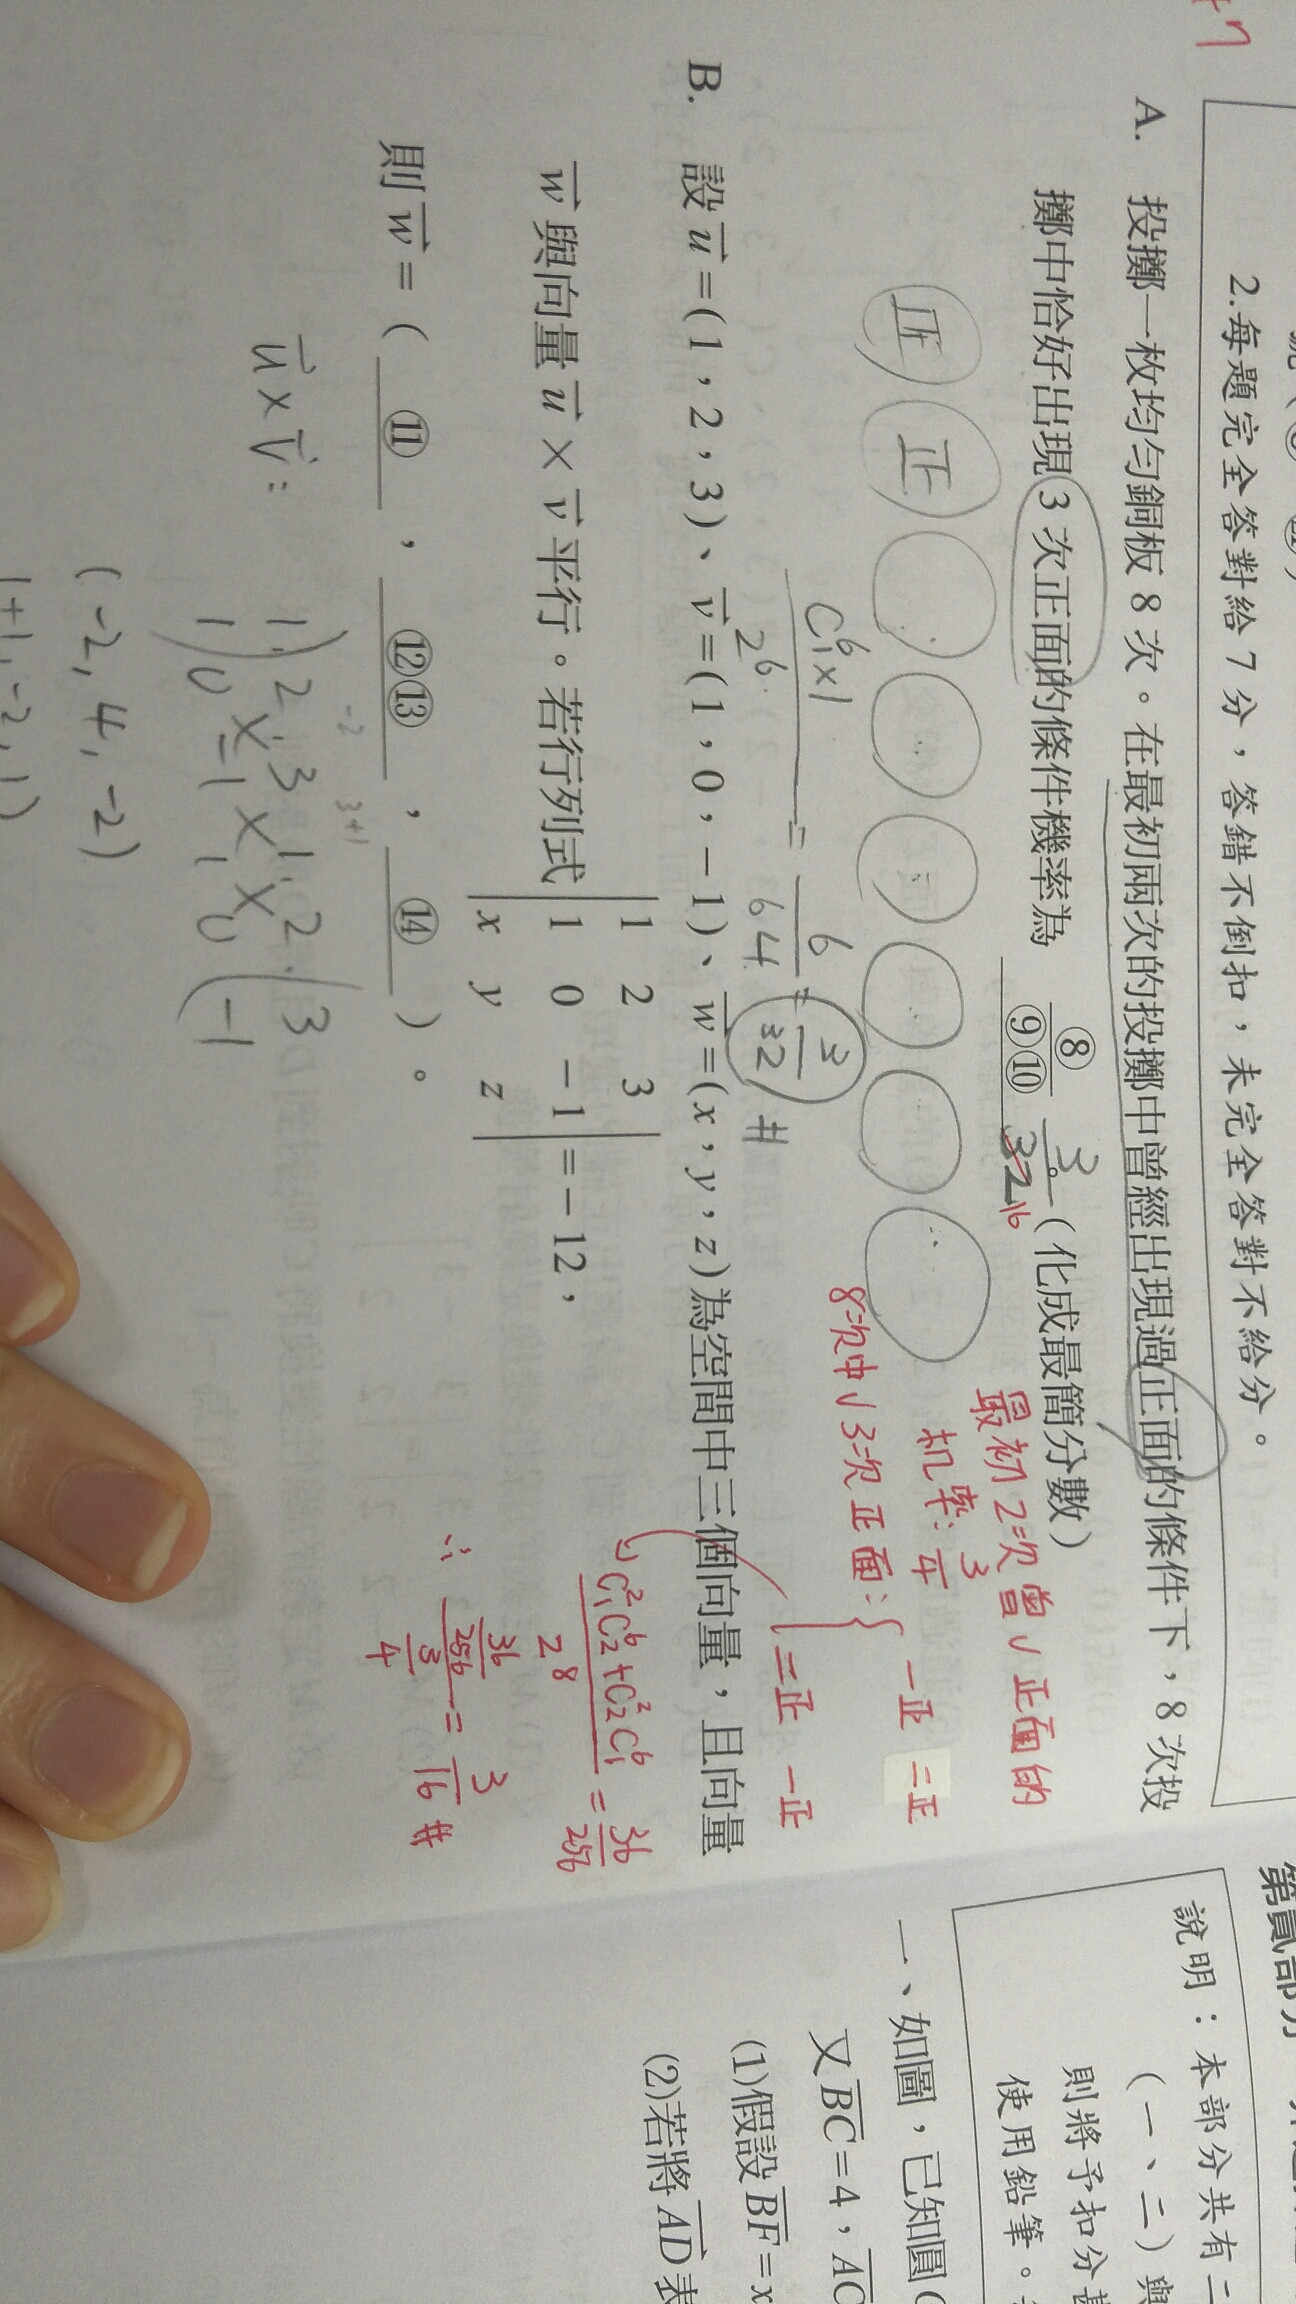 +7
2.每題完全答對給 7 分，答錯不倒扣，未完全答對不給分。
A. 投擲一枚均勻銅板 8 次。在最初兩次的投擲中曾經出現過正面的條件下，8 次投
擲中恰好出現 3 次正面的條件機率為 ⑧/⑨⑩ 3/32 16 (化成最簡分數)
正 正
C⁶₁×1/2⁶ = 6/64 = 3/32 #
最初2次曾√正面的
机率: 3/4
8次中√3次正面:{ 一正 二正
二正 一正
↳ C²₁C⁶₂+C²₂C⁶₁/2⁸ = 36/256
∴ 36/256 / 3/4 = 3/16 #
B. 設 u=(1，2，3)、v=(1，0，-1)、w=(x，y，z)為空間中三個向量，且向量
w 與向量 u × v 平行。若行列式 |1 2 3
1 0 -1
x y z| = -12，
則 w = ( ⑪ ， ⑫⑬ ， ⑭ )。
u×v:
-2 3+1
1 2 3 1 2 3
1 0 -1 1 0 -1
(-2, 4, -2)
1+1, -2, 1)
第貳部分
說明：本部分共有二
(一、二)與
則將予扣分甚
使用鉛筆。
一、如圖，已知圓
又 BC=4，AC
(1)假設 BF=x
(2)若將 AD 表